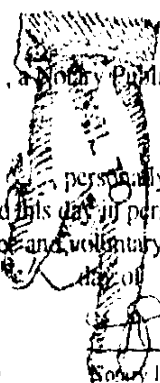 , a Notary Publi
, personally
d this day in per
ce and voluntary
day of
Notary P